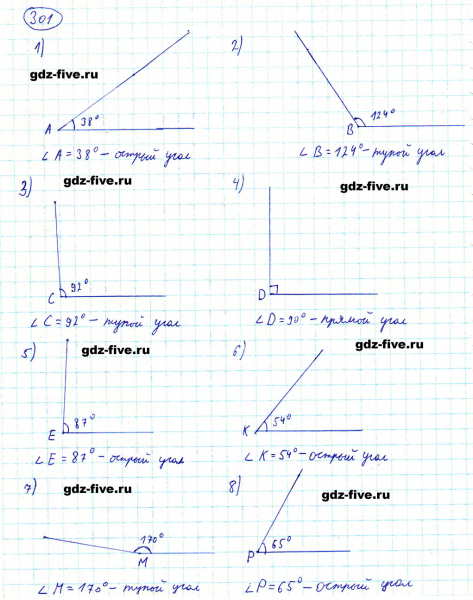 301
1)
2)
gdz-five.ru
gdz-five.ru
A 38°
B 124°
∠A = 38° – острый угол
∠B = 124° – тупой угол
3)
gdz-five.ru
4)
gdz-five.ru
C 92°
D
∠C = 92° – тупой угол
∠D = 90° – прямой угол
5)
gdz-five.ru
6)
gdz-five.ru
E 87°
K 54°
∠E = 87° – острый угол
∠K = 54° – острый угол
7)
gdz-five.ru
8)
gdz-five.ru
170°
M
P 65°
∠M = 170° – тупой угол
∠P = 65° – острый угол